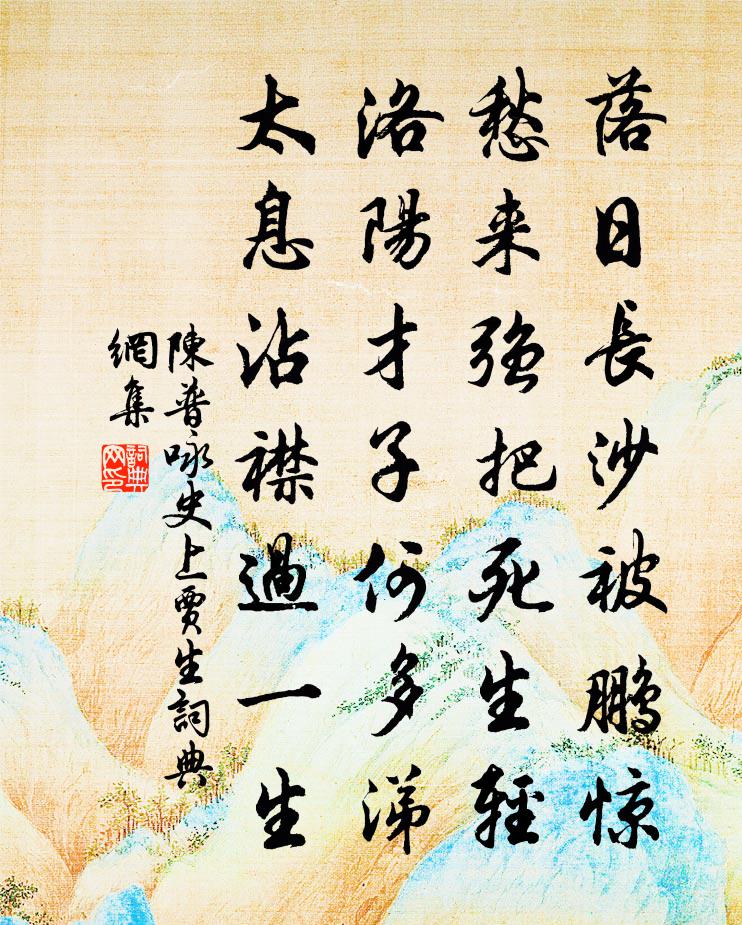 落日長沙被鵬惊
愁来强把死生輕
洛陽才子何多涕
太息沾襟過一生
陳普咏史上賈生詞典
網集
詞典
网印